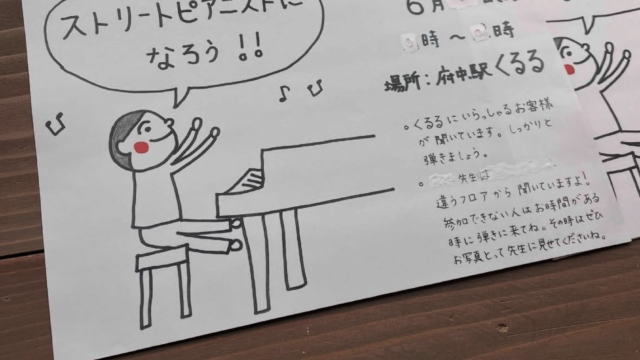 ストリートピアニストに
なろう!!
6月
時〜 時
場所:府中駅くるる
。くるるにいらっしゃるお客様
が聞いています。しっかりと
弾きましょう。
。 先生は
違うフロアから聞いていますよ!
参加できない人はお時間がある
時に弾きに来てね。その時はぜひ
お写真とって先生に見せてくださいね。